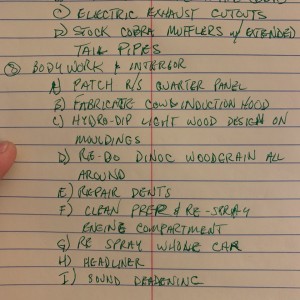 C) ELECTRIC EXHAUST CUTOUTS
D) STOCK COBRA MUFLERS w/ EXTENDED
TAIL PIPES
BODY WORK & INTERIOR
A) PATCH R/S QUARTER PANEL
B) FABRICATE COWL INDUCTION HOOD
C) HYDRO-DIP LIGHT WOOD DESIGN ON
MOULDINGS
D) RE-DO DINOC WOODGRAIN ALL
AROUND
E) REPAIR DENTS
F) CLEAN PREP & RE-SPRAY
ENGINE COMPARTMENT
G) RE SPRAY WHOLE CAR
H) HEADLINER
I) SOUND DEADENING